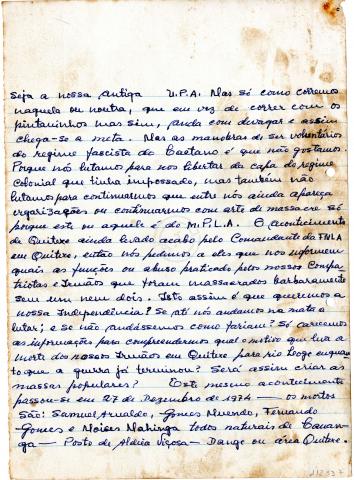 Seja a nossa antiga U.P.A. Mas só como corremos
naquela ou noutra, que em vez de correr com os
pintaninhos mas sim, anda com devagar e assim
chega-se a meta. Mas as manobras de ser voluntários
do regime fascista do Caetano é que não gostamos.
Porque nós lutamos para nos libertar da capa do regime
Colonial que tinha impossado, mas também não
lutamos para continuarmos que entre nós ainda apareça
organizações ou continuarmos com arte de massacre só
porque este ou aquele é do M.P.L.A. O acontecimento
de Quitexe ainda levado acabo pelo Comandante da FNLA
em Quitexe, então nós pedimos a eles que nos informem
quais as funções ou abuso praticado pelos nossos Compa-
triotas e Irmãos que foram massacrados barbaramente
sem um nem dois. Isto assim é que queremos a
nossa Independência? Se até nós andamos na mata a
lutar; e se não andássemos como fariam? Só carecemos
as informações para compreendermos qual o motivo que leva a
morte dos nossos Irmãos em Quitexe para rio Loge enquan-
to que a guerra já terminou? Será assim criar as
massas populares? Este mesmo acontecimento
passou-se em 27 de Dezembro de 1974 — os mortos
São: Samuel Arnaldo, Gomes Muendo, Fernando
Gomes e Moises Mahinga todos naturais de
— Posto de Aldeia Viçosa — Dange ou área Quitexe.